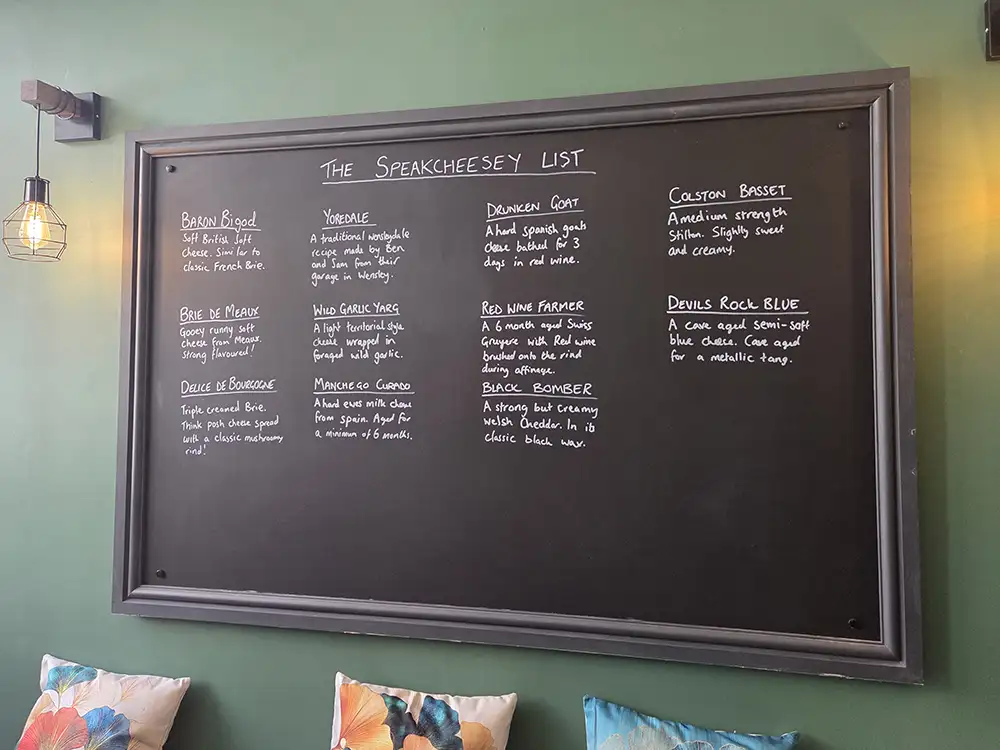 THE SPEAKCHEESEY LIST
BARON Bigod
Soft British Soft
cheese. Similar to
classic French Brie.
BRIE DE MEAUX
Gooey runny soft
cheese from Meaux.
Strong flavoured!
DELICE DE BOURGOGNE
Triple creamed Brie.
Think posh cheese spread
with a classic mushroomy
rind!
YOREDALE
A traditional wensleydale
recipe made by Ben
and Sam from their
garage in Wensley.
WILD GARLIC YARG
A light territorial style
cheese wrapped in
foraged wild garlic.
MANCHEGO CURADO
A hard ewes milk cheese
from spain. Aged for
a minimum of 6 months.
DRUNKEN GOAT
A hard spanish goats
cheese bathed for 3
days in red wine.
RED WINE FARMER
A 6 month aged Swiss
Gruyere with Red wine
brushed onto the rind
during affinage.
BLACK BOMBER
A strong but creamy
welsh Cheddar. In its
classic black wax.
COLSTON BASSET
A medium strength
Stilton. Slightly sweet
and creamy.
DEVILS ROCK BLUE
A cave aged semi-soft
blue cheese. Cave aged
for a metallic tang.